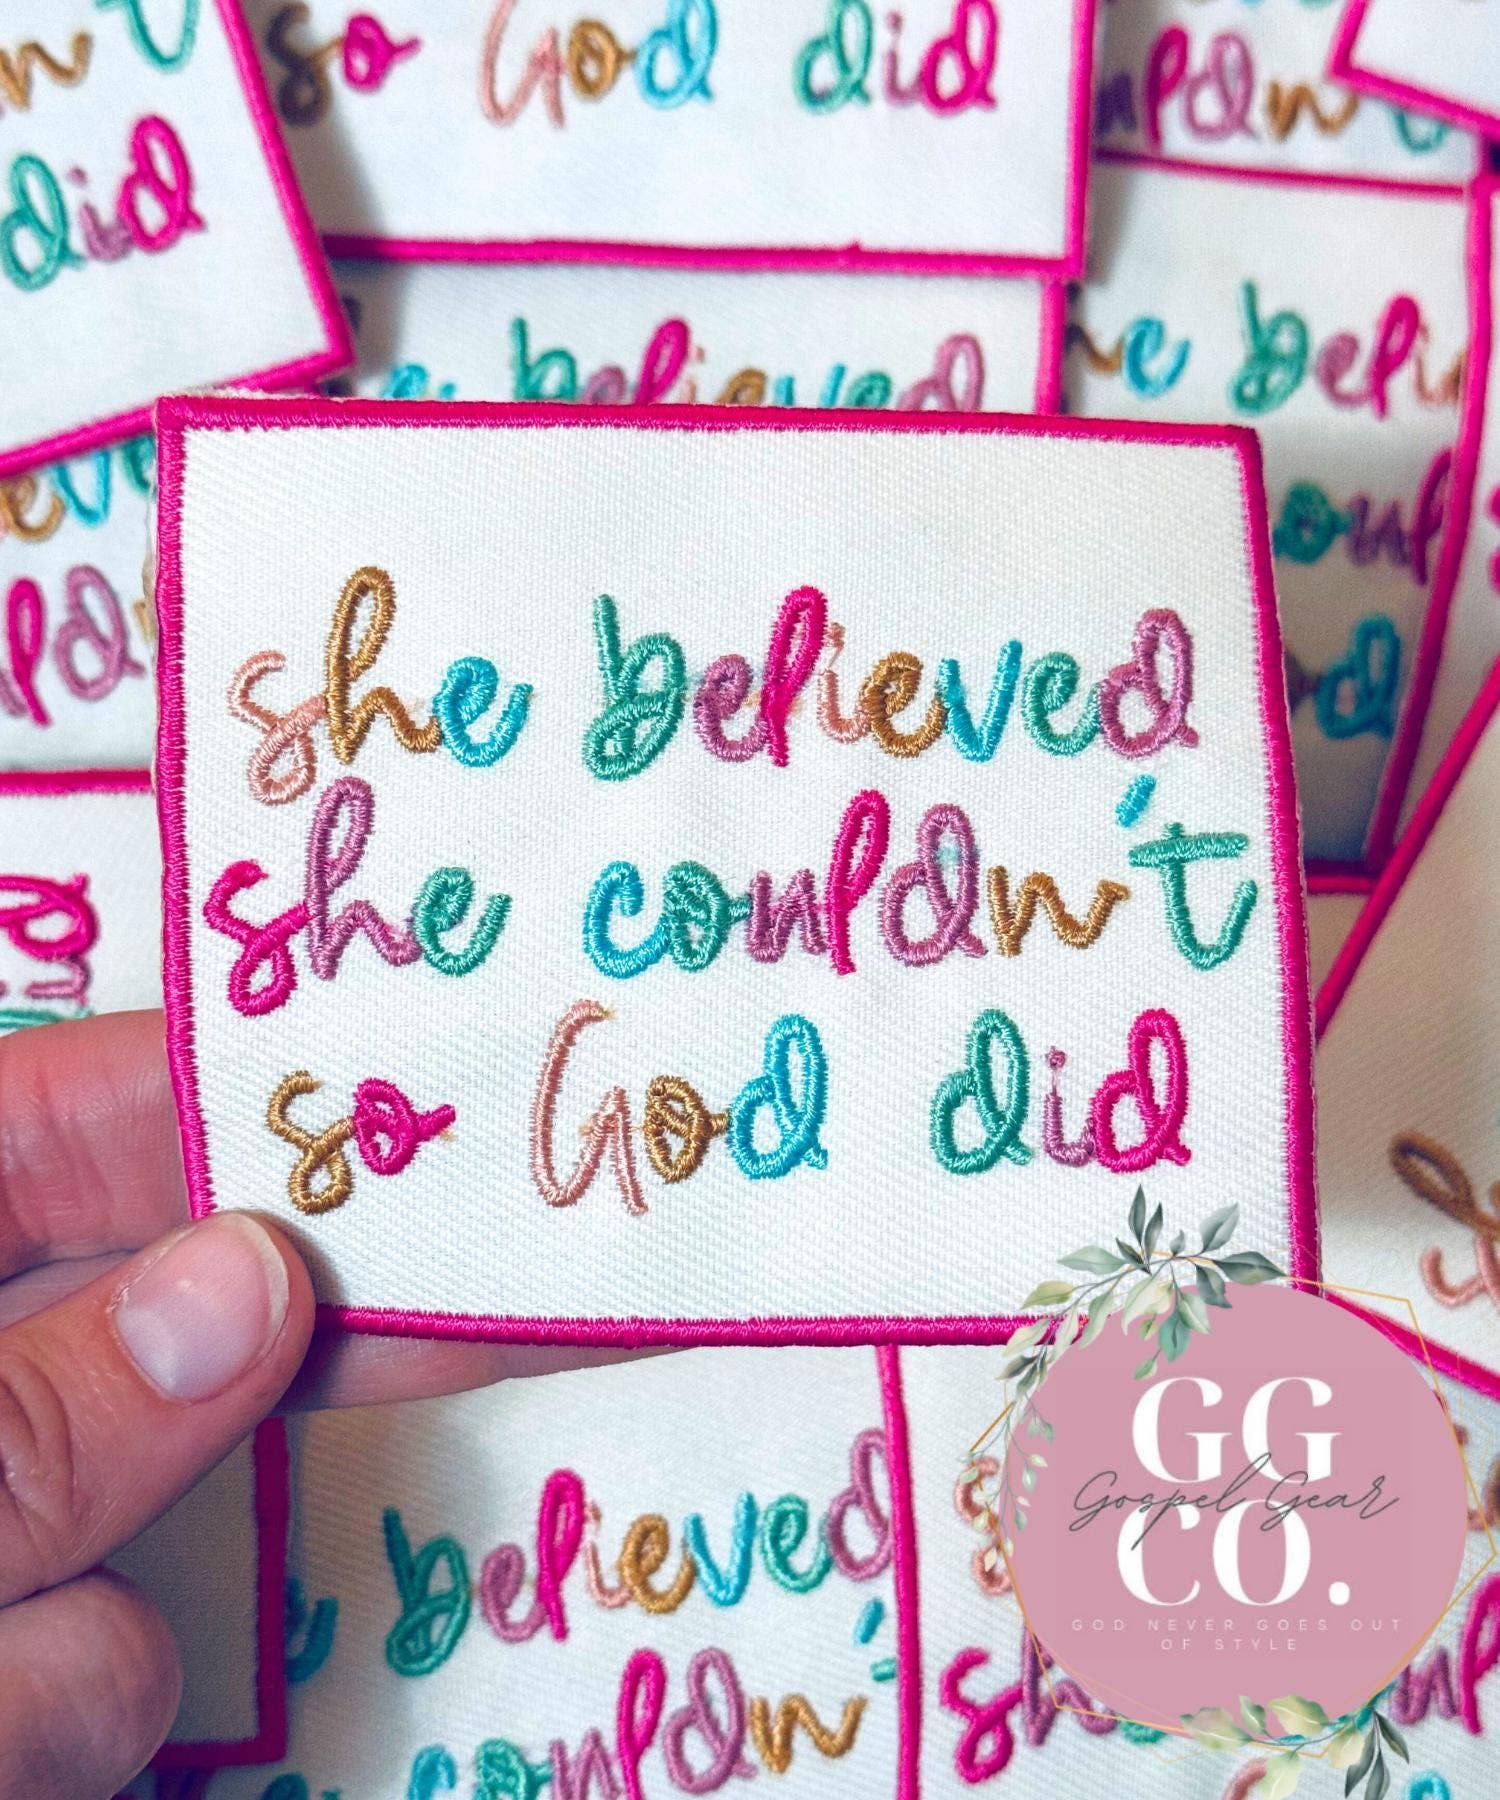 so God did
did
she believed
she couldn't
so God did
believed
couldn
GG
Gospel Gear
CO.
GOD NEVER GOES OUT
OF STYLE